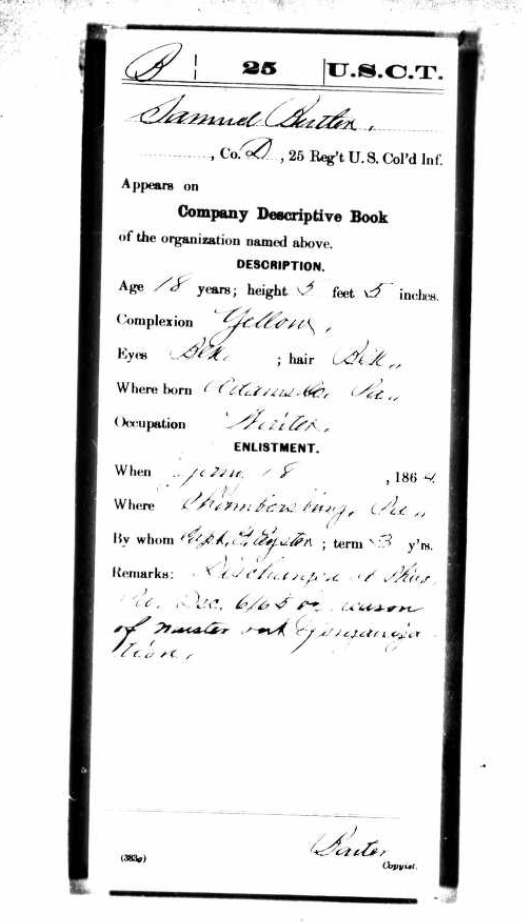 B | 25 | U.S.C.T.
Samuel Butler,
, Co. D, 25 Reg't U. S. Col'd Inf.
Appears on
Company Descriptive Book
of the organization named above.
DESCRIPTION.
Age 18 years; height 5 feet 5 inches.
Complexion Yellow,
Eyes Blk. ; hair Blk.,
Where born Adams Co. Pa.,
Occupation
ENLISTMENT.
When 18, 1864
Where Chambersburg, Pa.,
By whom Capt. Eyster ; term 3 y'rs.
Remarks: Discharged at
Pa. Dec. 6/65 by reason
of muster out of organiza
tion.
(383g)
Copyist.